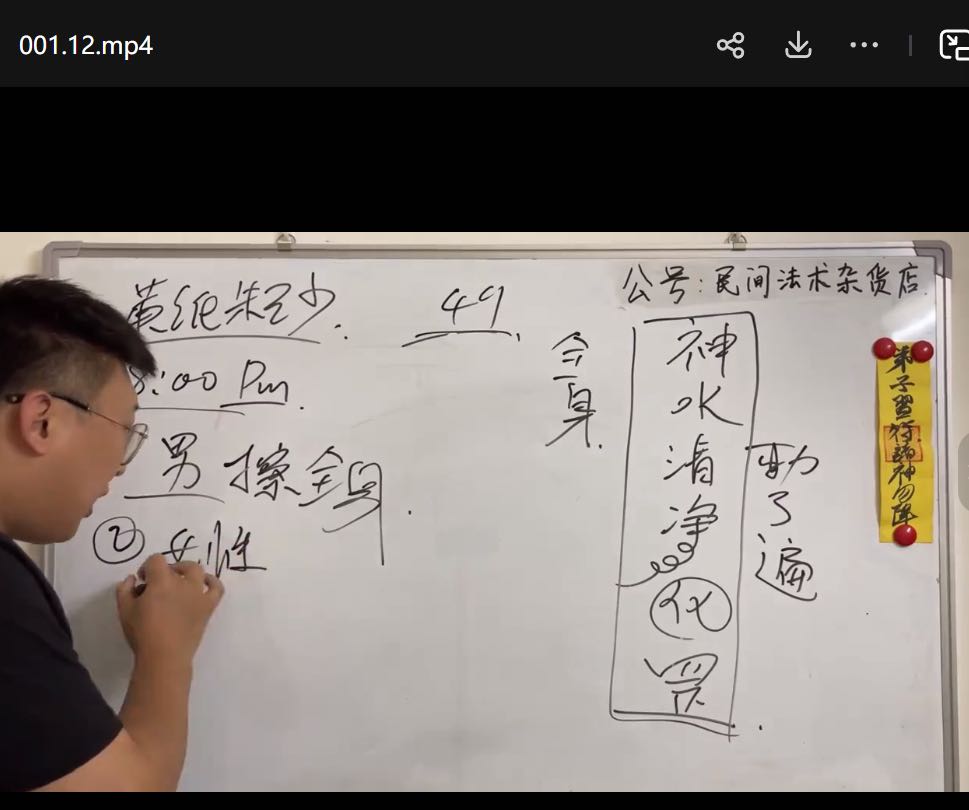 001.12.mp4
黄纸朱砂.
49.
公号:民间法术杂货店
8:00 Pm.
男 擦全身.
② 女性
全身.
神水清净化
了遍
弟子画符諸神勿降